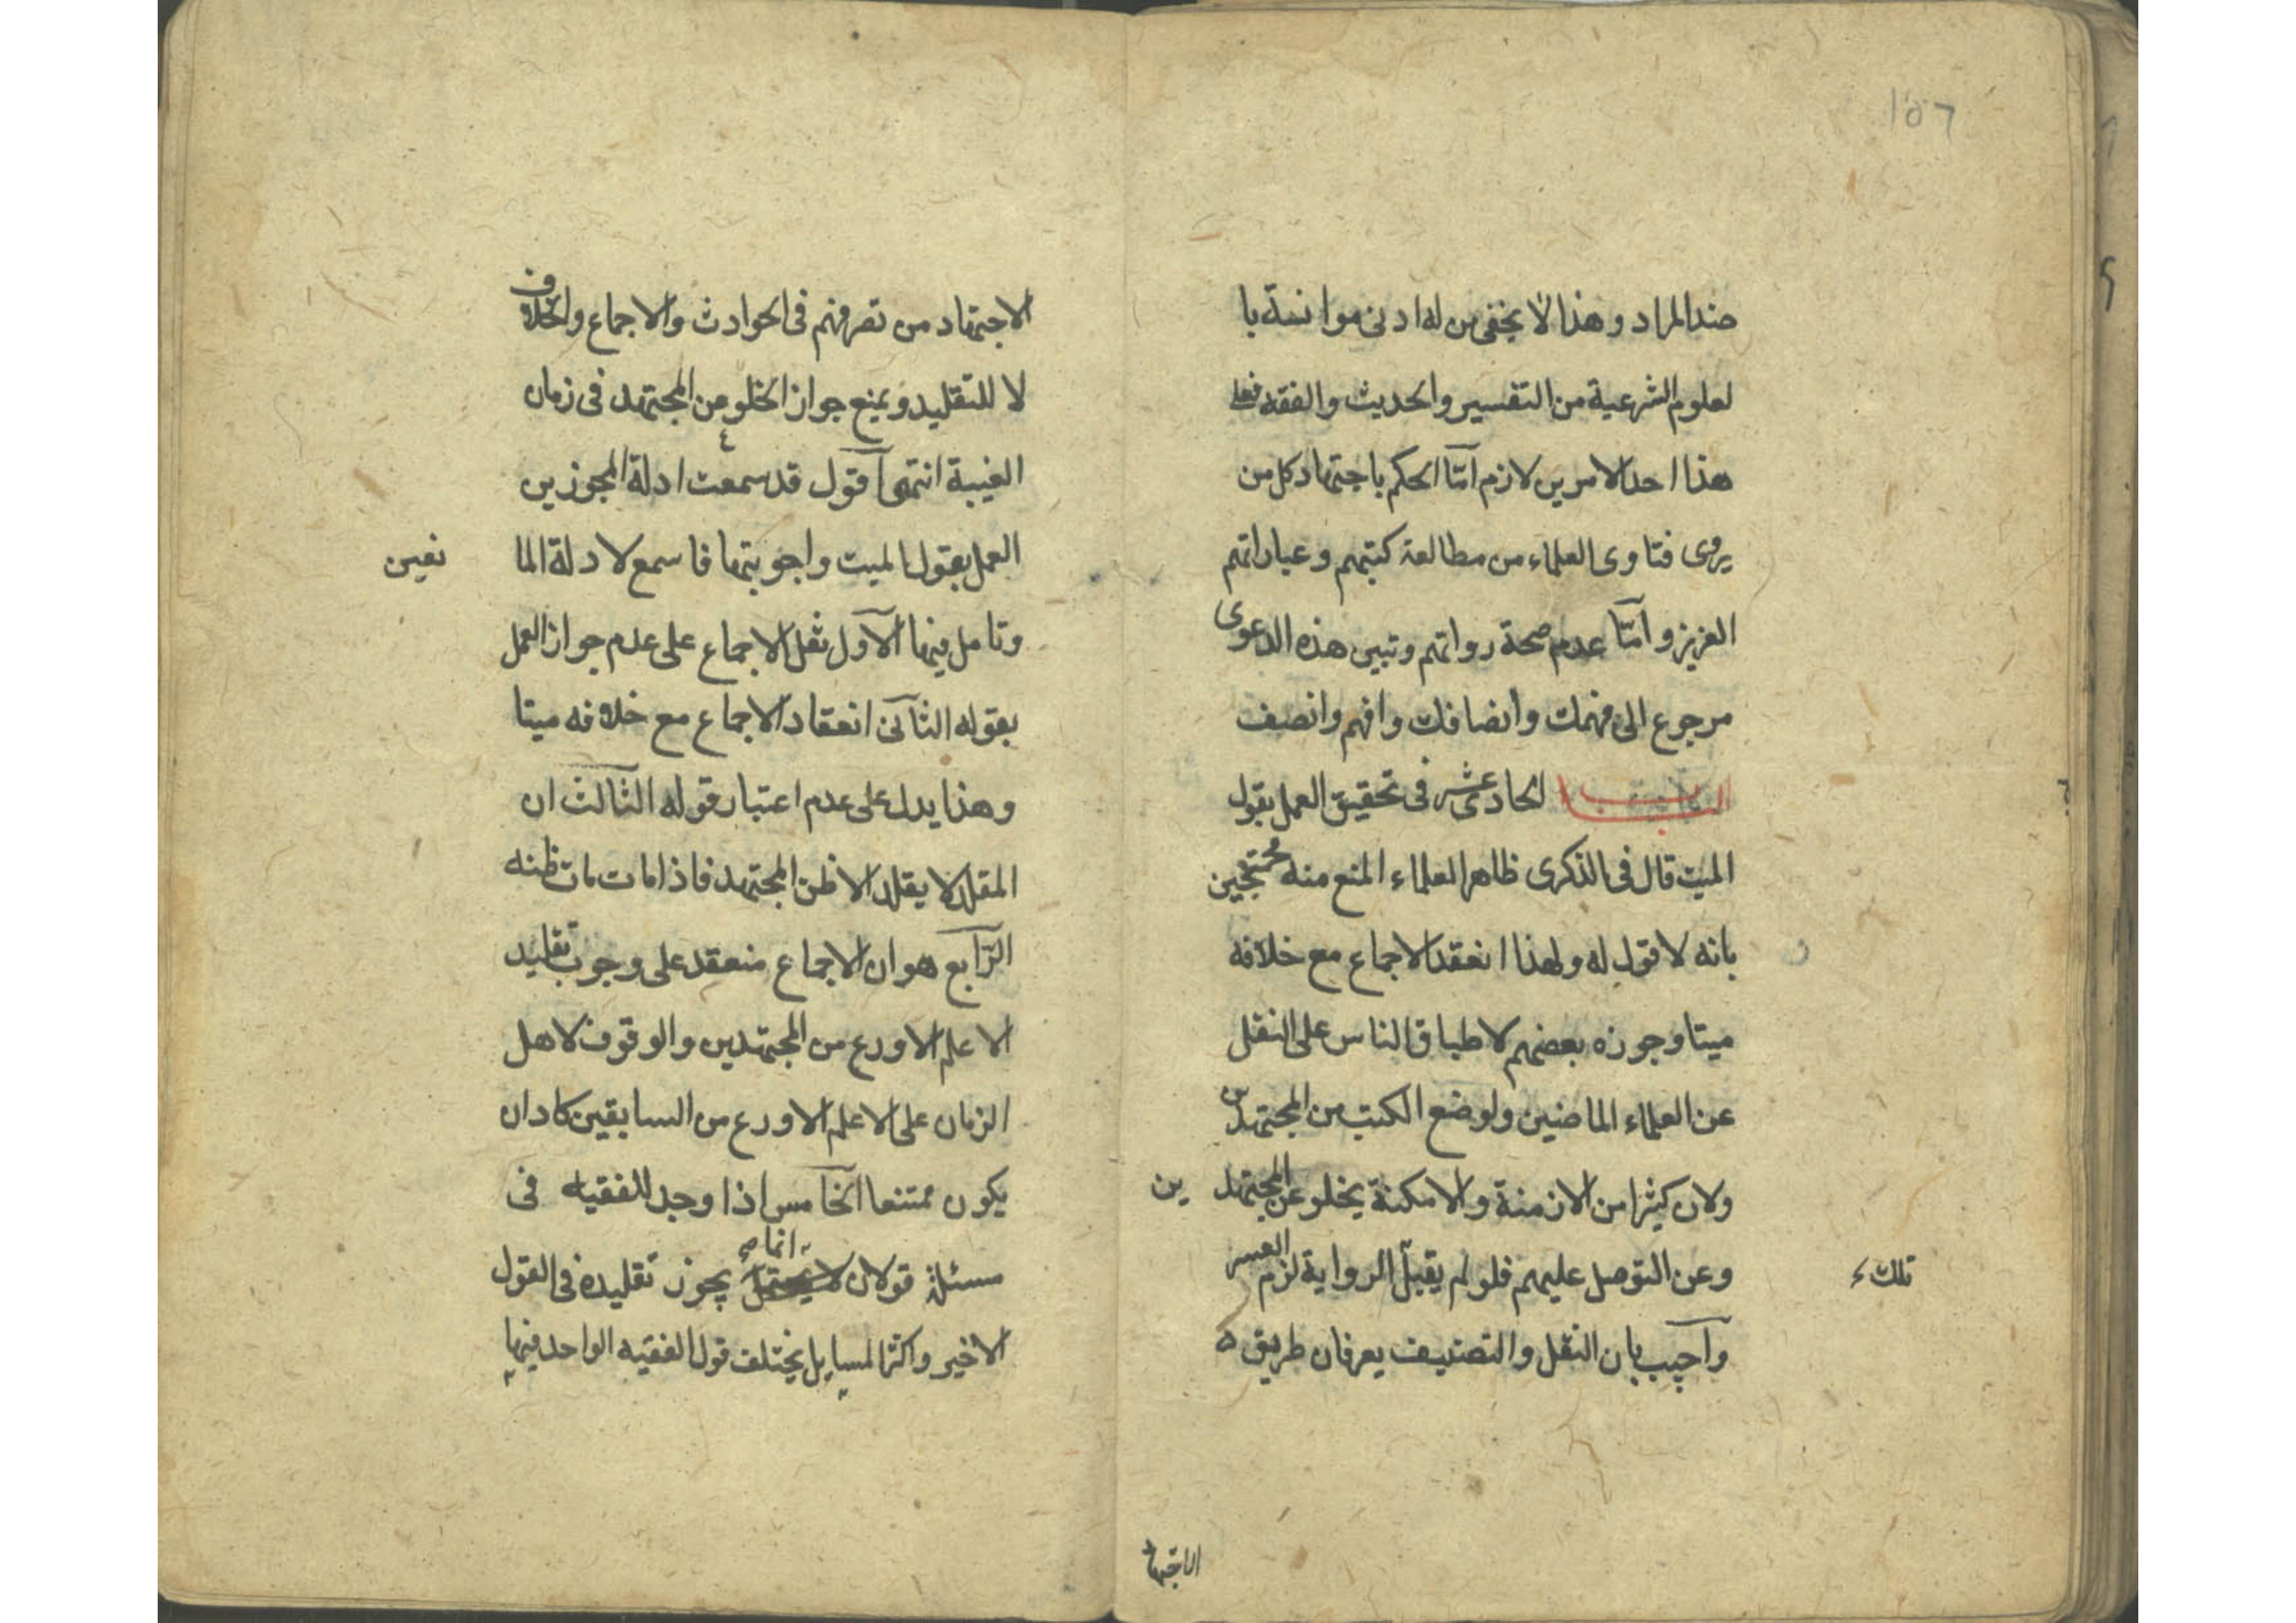 ١٥٦
ضد المراد وهذا لا يخفى من له ادنى موانسة با
لعلوم الشرعية من التفسير والحديث والفقه فعلى
هذا احد الامرين لازم امّا الحكم باجتهاد كل من
يروى فتاوى العلماء من مطالعة كتبهم وعباراتهم
العزيز و امّا عدم صحة رواتهم وتبيى هذه الدعوى
مرجوع الى فهمك وانصافك وافهم وانصف
الباب الحادى عشر فى تحقيق العمل بقول
الميت قال فى الذكرى ظاهر العلماء المنع منه محتجين
بانه لا قول له ولهذا انعقد الاجماع مع خلافه
ميتا وجوزه بعضهم لاطباق الناس على النقل
عن العلماء الماضين ولوضع الكتب من المجتهدين
ولان كثيرا من الازمنة والامكنة يخلو عن المجتهد ين
وعن التوصل عليهم فلو لم يقبل الرواية لزم العسر
تلك
واجيب بان النقل والتصنيف يعرفان طريق ه
الاجتها
الاجتهاد من تصرفهم فى الحوادث والاجماع والخلاف
لا للتقليد ويمنع جواز الخلو عن المجتهد فى زمان
الغيبة انتهى اقول قد سمعت ادلة المجوزين
العمل بقول الميت واجوبتها فاسمع لادلة الما نعين
وتامل فيها الاول نقل الاجماع على عدم جواز العمل
بقوله الثانى انعقاد الاجماع مع خلافه ميتا
وهذا يدل على عدم اعتبار قوله الثالث ان
المقلد لا يقلد الا ظن المجتهد فاذا مات مات ظنه
الرّابع هو ان الاجماع منعقد على وجوب تقليد
الاعلم الاورع من المجتهدين والوقوف لاهل
الزمان على الاعلم الاورع من السابقين كاد ان
يكون ممتنعا الخامس اذا وجد للفقيه فى
مسئلة قولان انما يجوز تقليده فى القول
الاخير واكثر المسايل يختلف قول الفقيه الواحد فيها